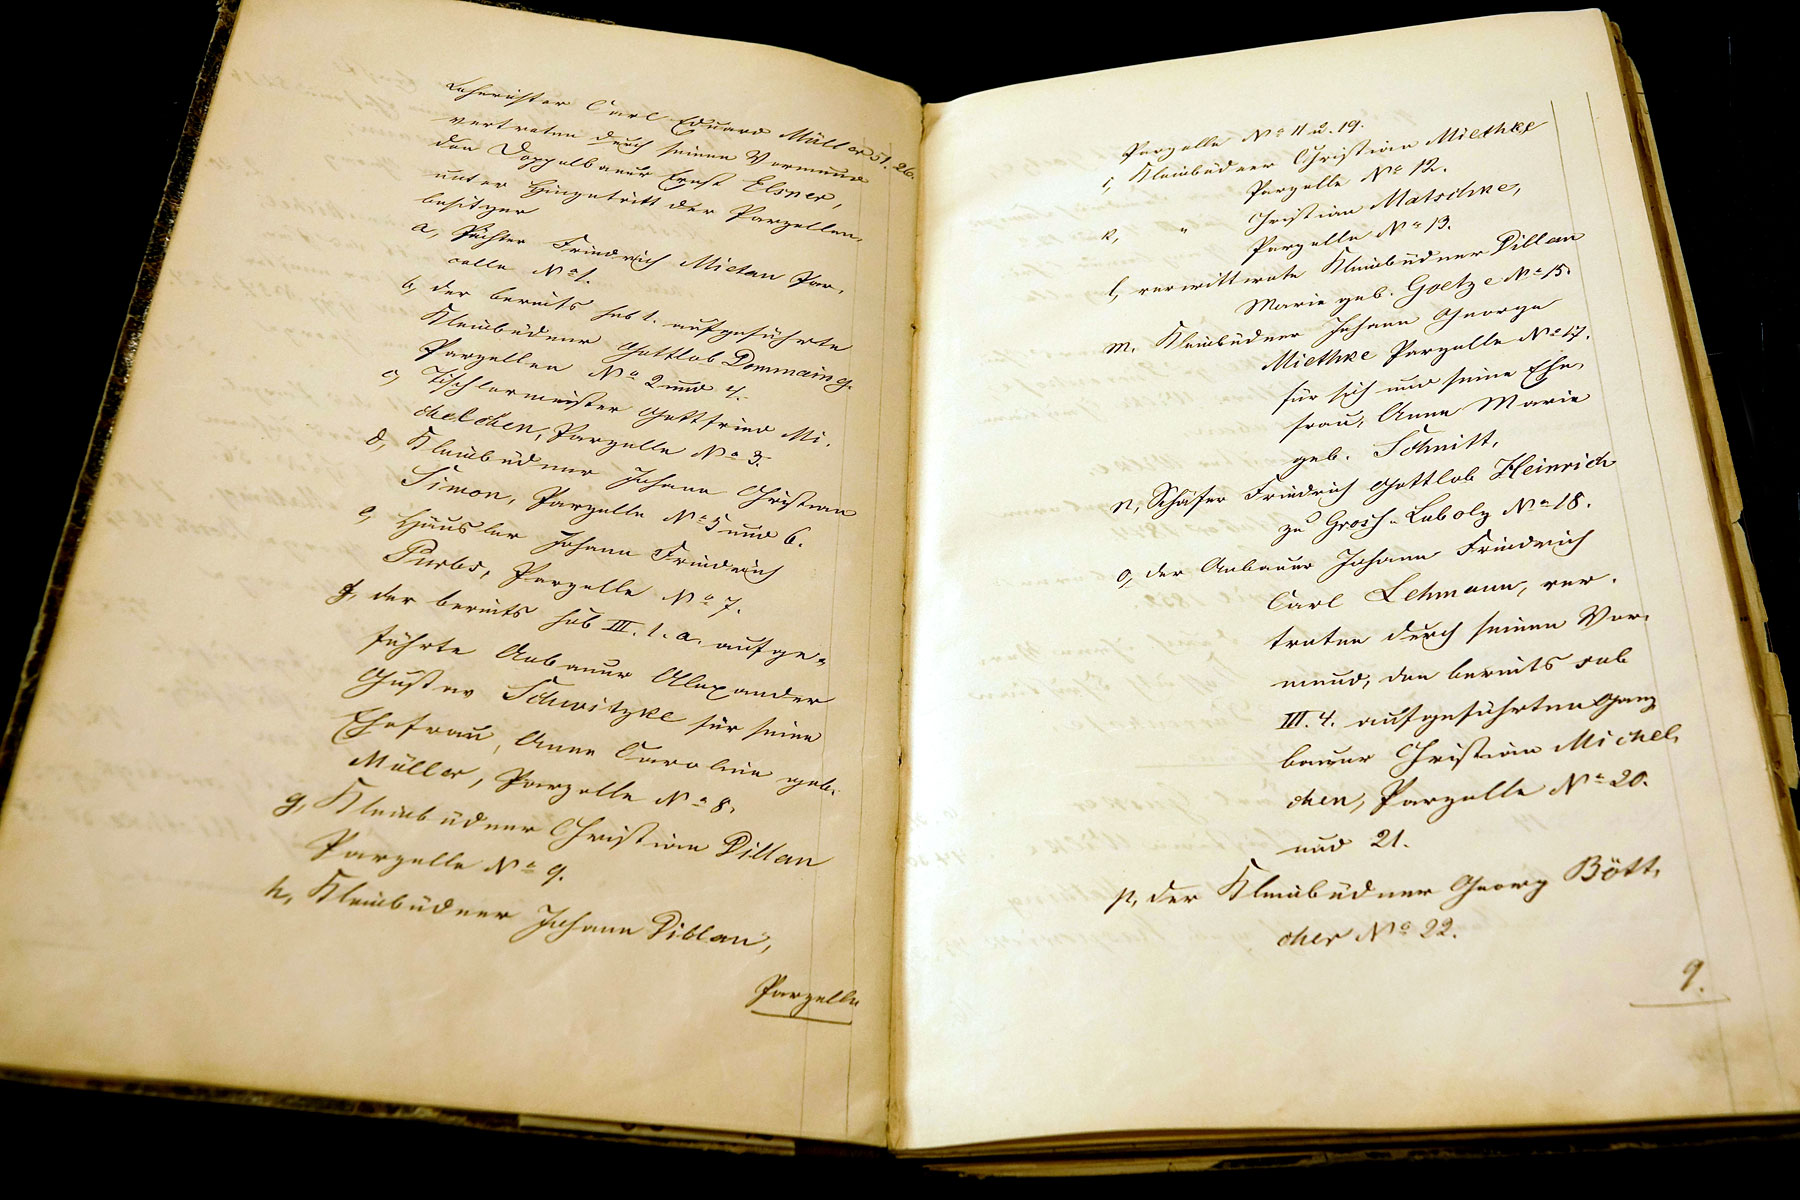 Lehnrichter Carl Eduard Müller 51. 26.
vertreten durch seinen Vormund
den Doppelbauer Ernst Elsner,
unter Hinzutritt der Parzellen,
besitzer
a, Pächter Friedrich Mietan Par,
celle No 1.
b, der bereits sub 1. aufgeführte
Kleinbüdner Gottlob Dommaing.
Parzellen No 2 und 4.
c, Tischlermeister Gottfried Mi,
chelchen, Parzelle No 3.
d, Kleinbüdner Johann Christian
Simon, Parzelle No 5 und 6.
e, Häusler Johann Friedrich
Purbs, Parzelle No 7.
f, der bereits sub III. 1. a. aufge-
führte Anbauer Alexander
Gustav Schwitzke für seine
Ehefrau, Anne Caroline geb.
Müller, Parzelle No 8.
g, Kleinbüdner Christian Dillan
Parzelle No 9.
h, Kleinbüdner Johann Dillan,
Parzelle
Parzelle No 11 u. 19.
i, Kleinbüdner Christian Miethke
Parzelle No 12.
k, " Christian Matschke,
Parzelle No 13.
l, verwittwete Kleinbüdner Dillan
Marie geb. Goetze No 15.
m. Kleinbüdner Johann George
Miethke Parzelle No 17.
für sich und seine Ehe,
frau, Anne Marie
geb. Schnitt,
n, Schäfer Friedrich Gottlob Heinrich
zu Grosz-Lubolz No 18.
o, der Anbauer Johann Friedrich
Carl Lehmann, ver,
treten durch seinen Vor,
mund, den bereits sub
III. 4. aufgeführten Ganz
bauer Christian Michel,
chen, Parzelle No 20.
und 21.
p, der Kleinbüdner Georg Bött,
cher No 22.
9.